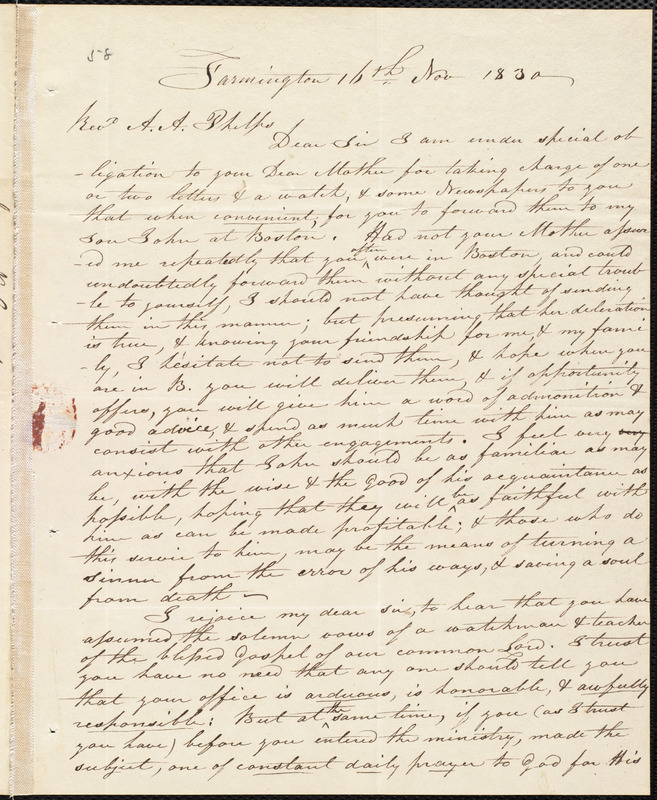 58
Farmington 16th Nov 1830
Revd A. A. Phelps
Dear Sir I am under special ob
-ligation to your Dear Mother for taking charge of one
or two letters & a watch, & some Newspapers to you
that when convenient, for you to forward them to my
Son John at Boston. Had not your Mother assur
-ed me repeatedly that you often were in Boston, and could
undoubtedly forward them without any special troub
-le to yourself, I should not have thought of sending
them in this manner; but presuming that her decleration
is true, & knowing your friendship for me, & my fami
-ly, I hesitate not to send them, & hope when you
are in B. you will deliver them, & if opportunity
offers, you will give him a word of admonition &
good advice, & spend as much time with him as may
consist with other engagements. I feel very very
anxious that John should be as familiar as may
be, with the wise & the good of his acquaintance as
possible, hoping that they will be as faithful with
him as can be made profitable; & those who do
this service to him may be the means of turning a
sinner from the error of his ways, & saving a soul
from death —
I rejoice my dear sir, to hear that you have
assumed the solemn vows of a watchman & teacher
of the blessed Gospel of our common Lord. I trust
you have no need that any one should tell you
that your office is arduous, is honorable, & awfully
responsible: But at the same time, if you (as I trust
you have) before you entered the ministry, made the
subject, one of constant daily prayer to God for His